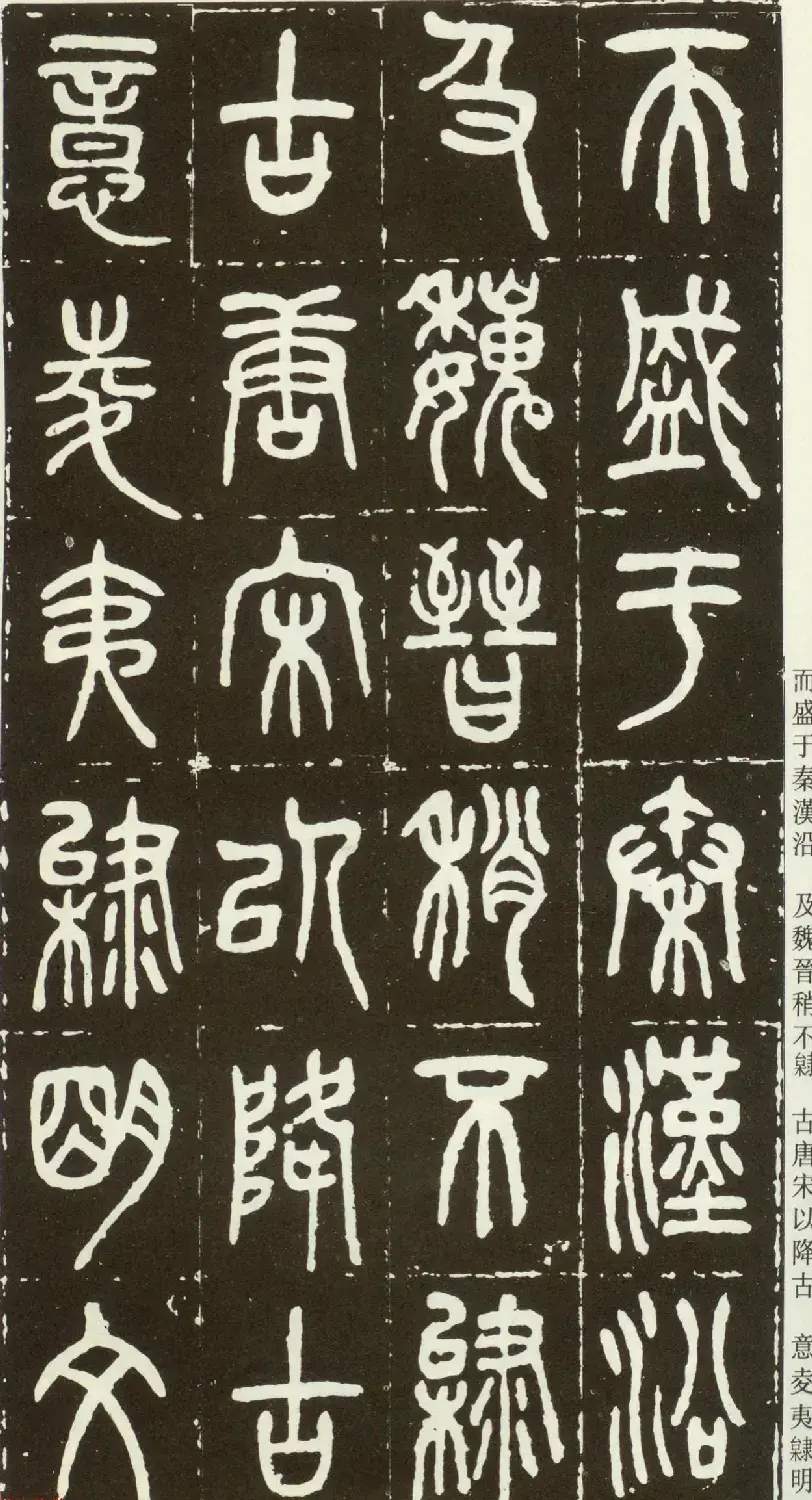 而盛于秦漢沿
及魏晉稍不隸
古唐宋以降古
意夌夷隸明文
而盛于秦漢沿 及魏晉稍不隸 古唐宋以降古 意夌夷隸明